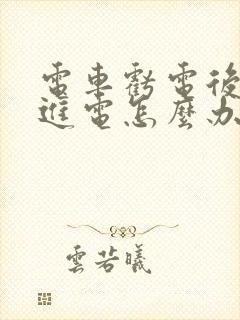 電車虧電後
進電怎麼办
雲若曦